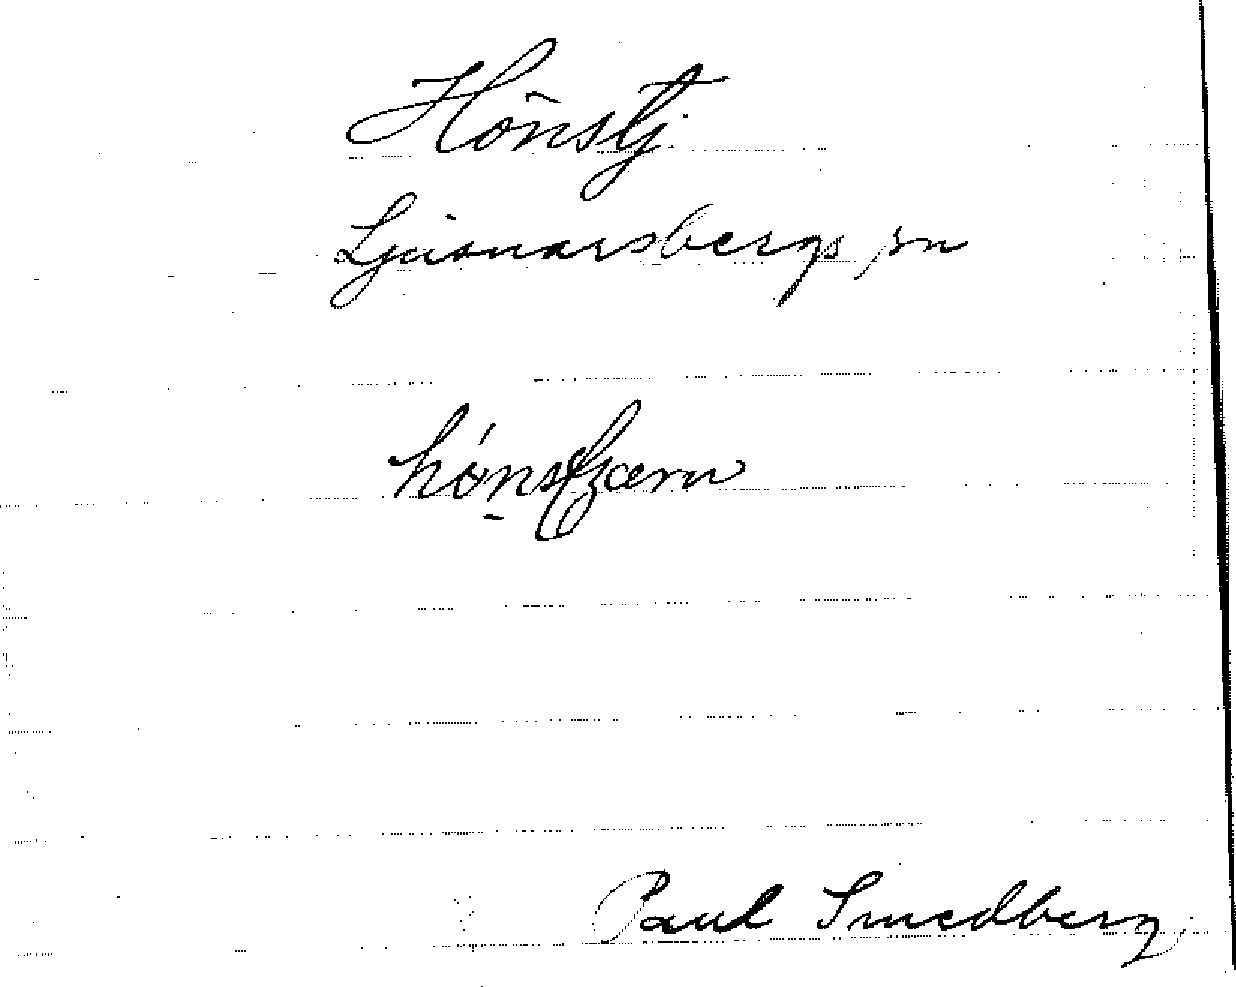 Hönstj.
Ljusnarsbergs sn
hónstjærn
Paul Smedberg